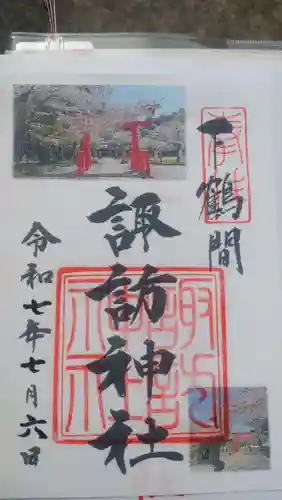 奉拝
下鶴間
諏訪神社
令和七年七月六日